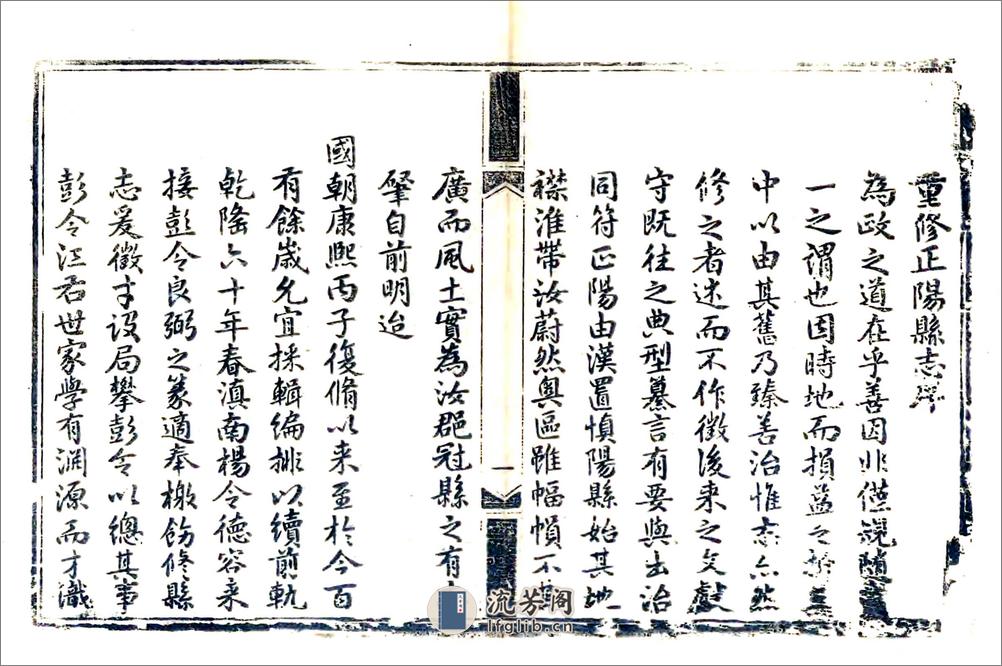 重修正陽縣志序
為政之道在乎善因非僅規隨
一之謂也因時地而損益之
中以由其舊乃臻善治惟志亦然
修之者述而不作徵後来之文獻
守既往之典型纂言有要與出治
同符正陽由漢置慎陽縣始其地
襟淮帶汝蔚然輿區雖幅幀不
廣而風土實為汝郡冠縣之有
肇自前明迨
國朝康熙丙子復脩以来至於今百
有餘歲允宜採輯編排以續前軌
乾隆六十年春滇南楊令德容来
接彭令良弼之篆適奉檄飭修縣
志爰徵才設局攀彭令以總其事
彭令江右世家學有淵源而才識
一
流芳阁
lfglib.cn